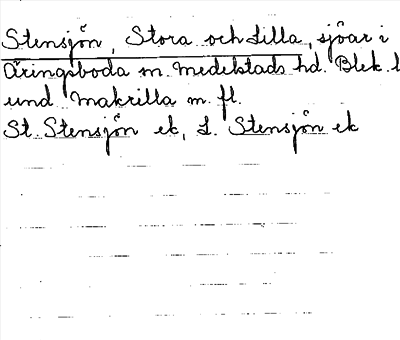 Stensjön, Stora och Lilla, sjöar i
Åringsboda m. Medelstads hd. Blek. l
und Makrilla m. fl.
St. Stensjön ek, L. Stensjön ek